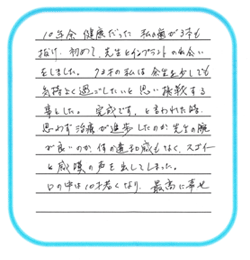 10年余 健康だった 私の歯が3本も
抜け、初めて、先生とインプラントの出会い
をしました。72才の私は余生を少しでも
気持よく過ごしたいと思い 挑戦する
事もした。完成です、と言われた時
思わず治療が進歩したのか先生の腕
が良いのか、何の違和感もなく、スゴイ
と感嘆の声を出してしまった。
口の中は10才若くなり、最高に幸せ